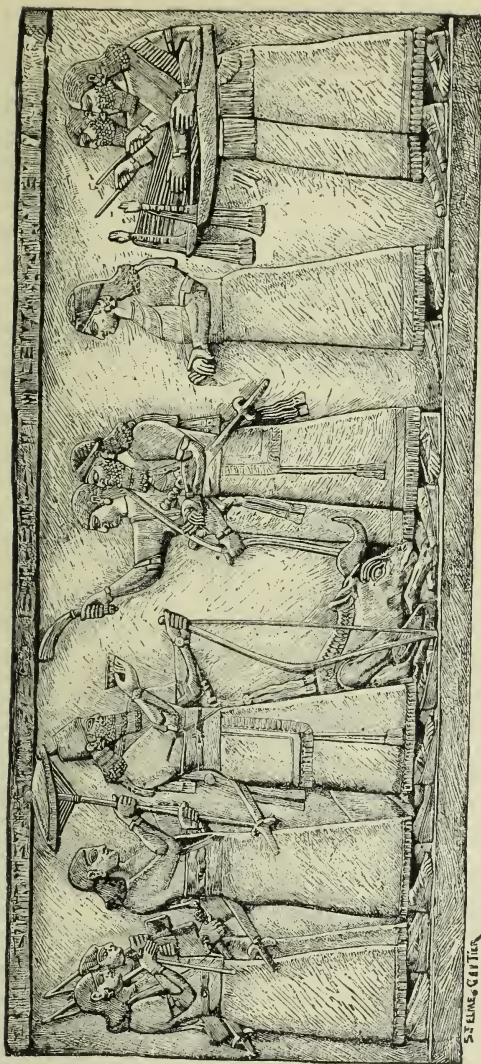 St ELME. GAUTIER